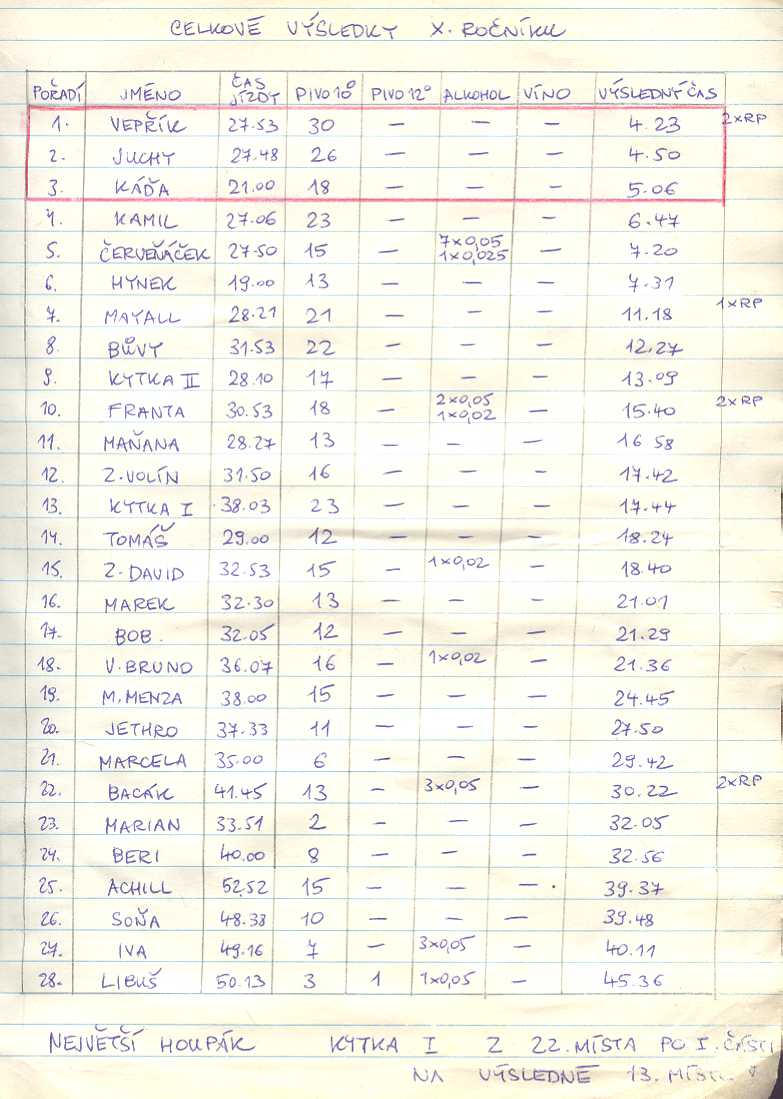 CELKOVÉ VÝSLEDKY X. ROČNÍKU
POŘADÍ JMÉNO ČAS JÍZDY PIVO 10° PIVO 12° ALKOHOL VÍNO VÝSLEDNÝ ČAS
1. VEPŘÍK 27.53 30 — — — 4.23 2xRP
2. JUCHY 27.48 26 — — — 4.50
3. KÁĎA 21.00 18 — — — 5.06
4. KAMIL 27.06 23 — — — 6.47
5. ČERVEŇÁČEK 27.50 15 — 7x0,05 1x0,025 — 7.20
6. HYNEK 19.00 13 — — — 7.31
7. MAYALL 28.21 21 — — — 11.18 1xRP
8. BŮVY 31.53 22 — — — 12.27
9. KYTKA II 28.10 17 — — — 13.09
10. FRANTA 30.53 18 — 2x0,05 1x0,02 — 15.40 2xRP
11. MAŇANA 28.27 13 — — — 16 58
12. Z.VOLÍN 31.50 16 — — — 17.42
13. KYTKA I 38.03 23 — — — 17.44
14. TOMÁŠ 29.00 12 — — — 18.24
15. Z.DAVID 32.53 15 — 1x0,02 — 18.40
16. MAREK 32.30 13 — — — 21.01
17. BOB. 32.05 12 — — — 21.29
18. V.BRUNO 36.07 16 — 1x0,02 — 21.36
19. M.MENZA 38.00 15 — — — 24.45
20. JETHRO 37.33 11 — — — 27.50
21. MARCELA 35.00 6 — — — 29.42
22. BACÁK 41.45 13 — 3x0,05 — 30.22 2xRP
23. MARIAN 33.51 2 — — — 32.05
24. BERI 40.00 8 — — — 32.56
25. ACHILL 52.52 15 — — — 39.37
26. SOŇA 48.38 10 — — — 39.48
27. IVA 49.16 7 — 3x0,05 — 40.11
28. LIBUŠ 50.13 3 1 1x0,05 — 45.36
NEJVĚTŠÍ HOUPÁK KYTKA I Z 22. MÍSTA PO I. ČÁSTI
NA VÝSLEDNÉ 13. MÍSTO